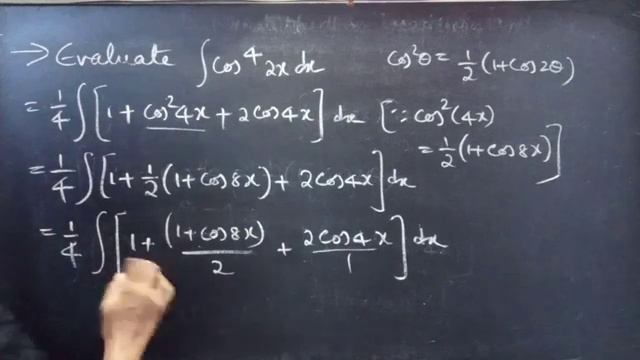 → Evaluate ∫cos⁴ 2x dx cos²θ = 1/2 (1+cos2θ)
= 1/4 ∫[1 + cos²4x + 2cos4x] dx [∵ cos²(4x)
= 1/2 (1+cos8x)]
= 1/4 ∫[1 + 1/2 (1+cos8x) + 2cos4x] dx
= 1/4 ∫[1 + (1+cos8x)/2 + 2cos4x/1] dx